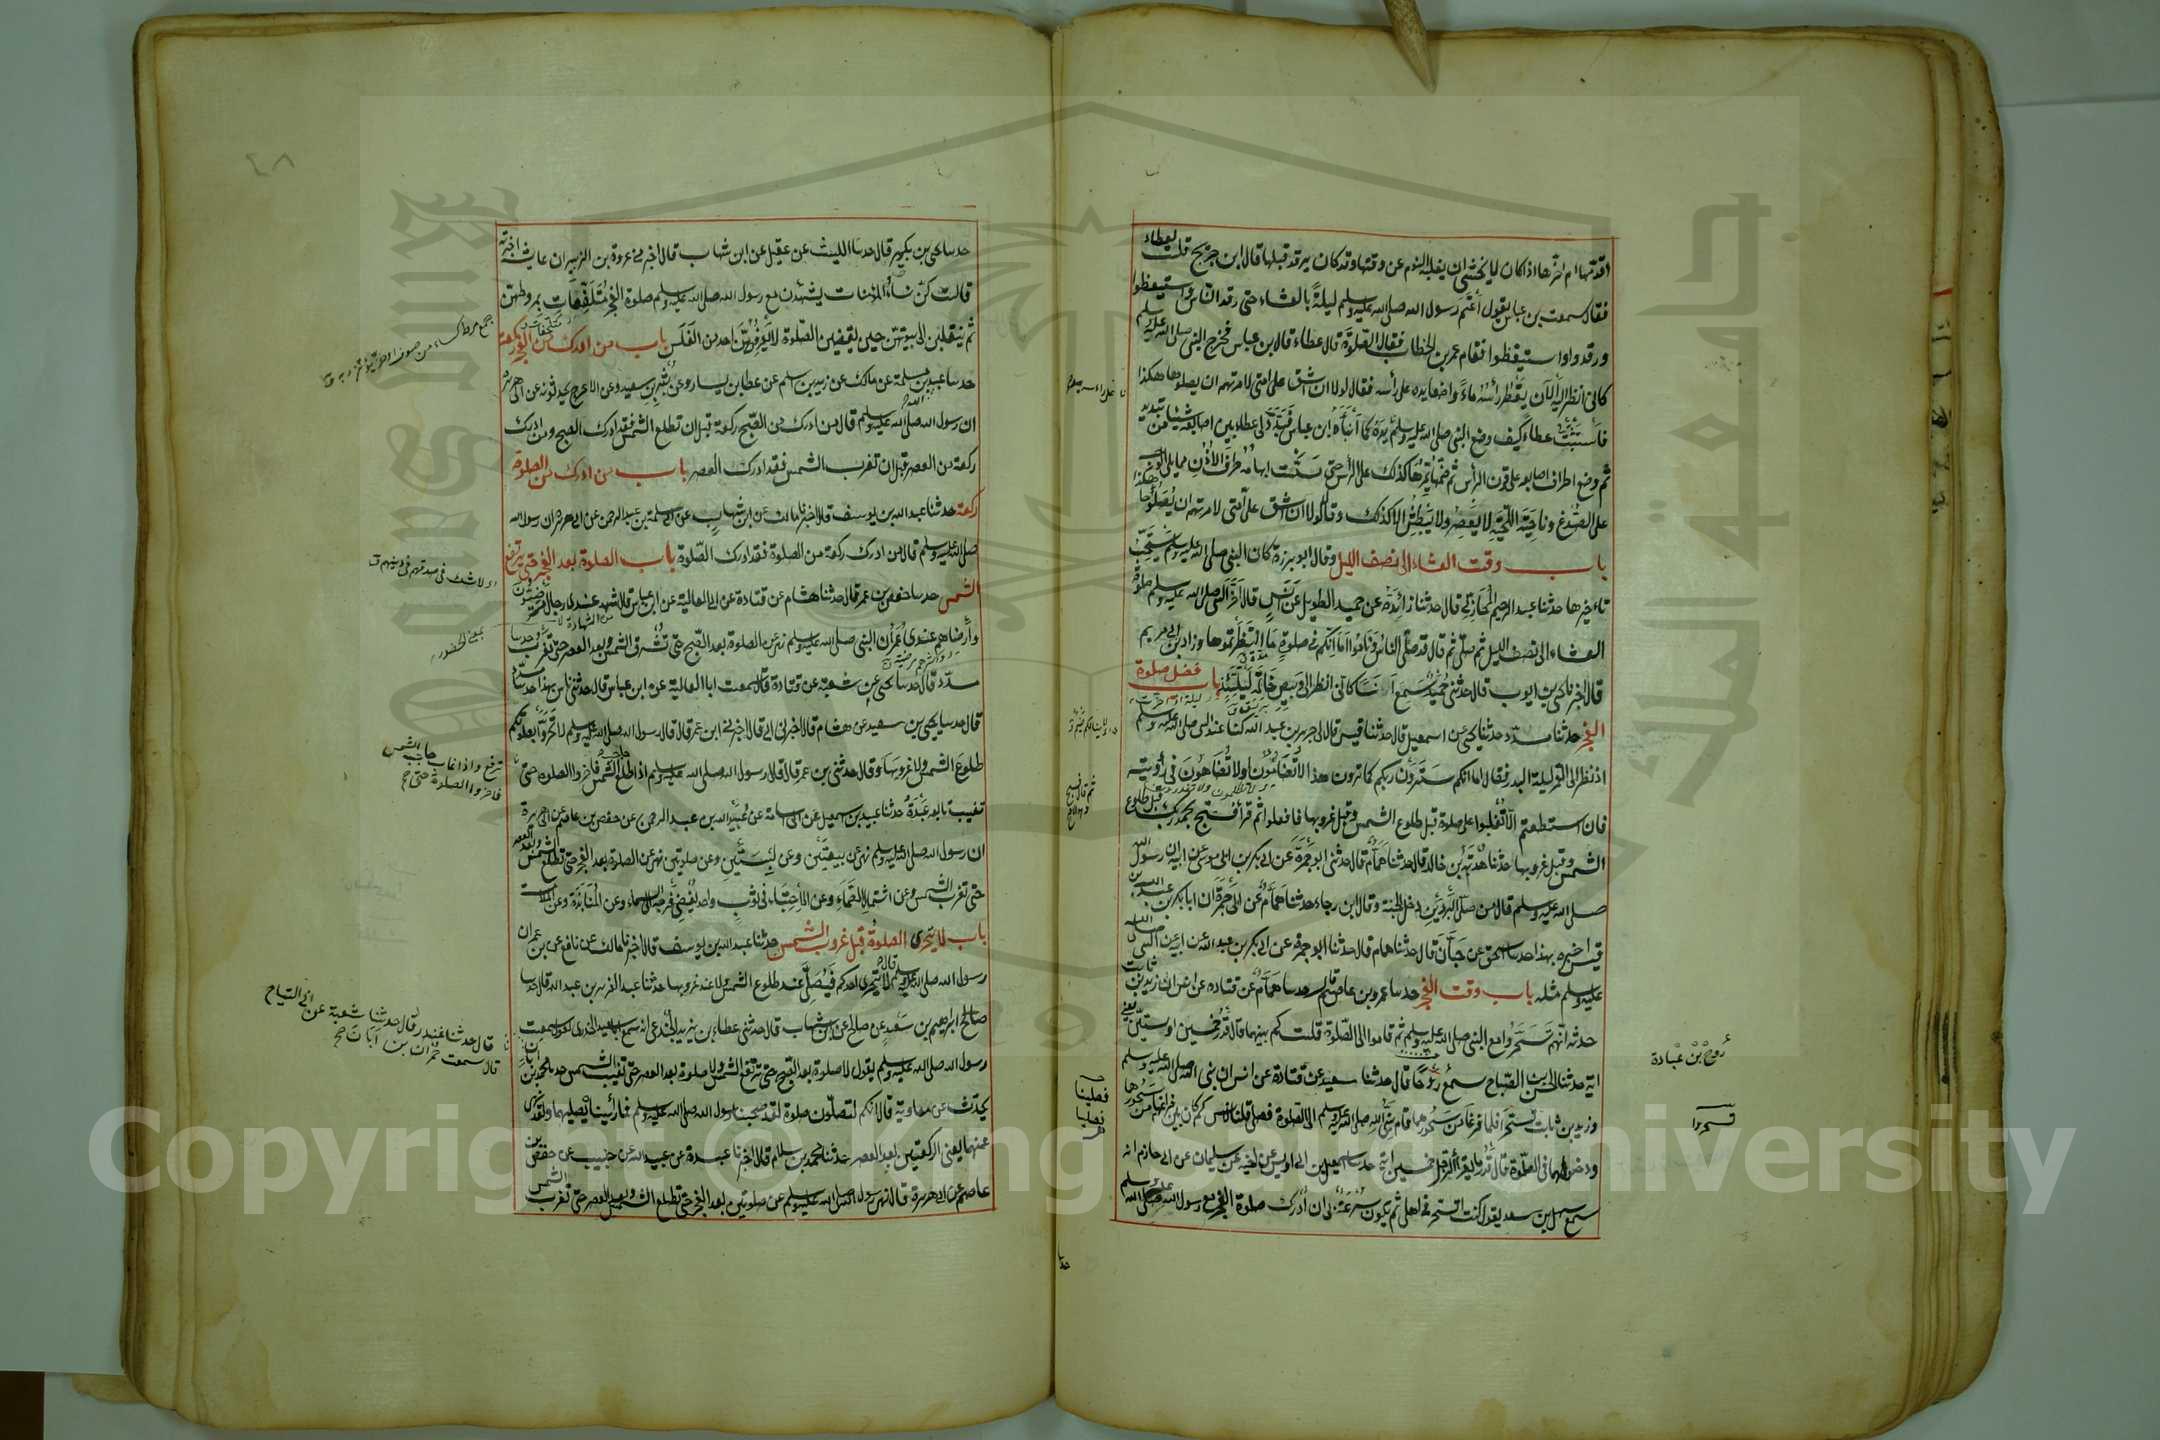 اقدمها ام اخرها اذا كان لا يخشى ان يغلبه النوم عن وقتها وقد كان يرقد قبلها قال ابن جريج قلت لعطاء
فقال سمعت بن عباس يقول اعتم رسول الله صلى الله عليه وسلم ليلة بالعشاء حتى رقد الناس واستيقظوا
ورقدوا واستيقظوا فقام عمر بن الخطاب فقال الصلوة قال عطاء قال ابن عباس فخرج النبي صلى الله عليه وسلم
كاني انظر اليه الآن يقطر رأسه ماء واضعا يده على رأسه فقال لولا ان اشق على امتي لامرتهم ان يصلوها هكذا
فاستثبت عطاء كيف وضع النبي صلى الله عليه وسلم يده كما انبأه ابن عباس فبدد لي عطاء بين اصابعه شيئا من تبديد
ثم وضع اطراف اصابعه على قرن الرأس ثم ضمها يمرها كذلك على الرأس حتى مست ابهامه طرف الأذن مما يلي الوجه
على الصدغ وناحية اللحية لا يعصر ولا يبطش الا كذلك وقال لولا ان اشق على امتي لامرتهم ان يصلوها هكذا
باب وقت العشاء الى نصف الليل وقال ابو برزة كان النبي صلى الله عليه وسلم يستحب
تاخيرها حدثنا عبد الرحيم المحاربي قال حدثنا زائدة عن حميد الطويل عن انس قال اخر النبي صلى الله عليه وسلم صلوة
العشاء الى نصف الليل ثم صلى ثم قال قد صلى الناس وناموا اما انكم في صلوة ما انتظرتموها وزاد بن ابي مريم
قال اخبرنا يحيى بن ايوب قال حدثني حميد سمع انسا كاني انظر الى وبيص خاتمه ليلتئذ باب فضل صلوة
الفجر حدثنا مسدد حدثنا يحيى عن اسمعيل قال حدثنا قيس قال لي جرير بن عبد الله كنا عند النبي صلى الله عليه وسلم
اذ نظر الى القمر ليلة البدر فقال اما انكم سترون ربكم كما ترون هذا لا تضامون او لا تضاهون في رؤيته
فان استطعتم الا تغلبوا على صلوة قبل طلوع الشمس وقبل غروبها فافعلوا ثم قرأ فسبح بحمد ربك قبل طلوع
الشمس وقبل غروبها حدثنا هدبة بن خالد قال حدثنا همام قال حدثني ابو جمرة عن ابي بكر بن ابي موسى عن ابيه ان رسول الله
صلى الله عليه وسلم قال من صلى البردين دخل الجنة وقال ابن رجاء حدثنا همام عن ابي جمرة ان ابا بكر بن عبد الله بن
قيس اخبره بهذا حدسا اسحق عن حبان قال حدثنا همام قال حدثنا ابو جمرة عن ابي بكر بن عبد الله عن ابيه عن النبي صلى الله
عليه وسلم مثله باب وقت الفجر حدسا عمرو بن عاصم قال حدسا همام عن قتادة عن انس ان زيد بن ثابت
حدثه انهم تسحروا مع النبي صلى الله عليه وسلم ثم قاموا الى الصلوة قلت كم بينهما قال قدر خمسين او ستين يعني
اية حدثنا الحسن بن الصباح سمع روحا قال حدثنا سعيد عن قتادة عن انس ان نبي الله صلى الله عليه وسلم
وزيد بن ثابت تسحرا فلما فرغا من سحورهما قام نبي الله صلى الله عليه وسلم الى الصلوة فصلى قلنا لانس كم كان بين فراغهما من سحورهما
ودخولهما في الصلوة قال قدر ما يقرأ الرجل خمسين اية حدسا اسمعيل بن ابي اويس عن اخيه عن سليمان عن ابي حازم انه
سمع سهل بن سعد يقول كنت اتسحر في اهلي ثم يكون سرعة بي ان ادرك صلوة الفجر مع رسول الله صلى الله عليه وسلم
روح بن عبادة
تسحروا
فصلينا
فصليا
حدسا يحيى بن بكير قال حدسا الليث عن عقيل عن ابن شهاب قال اخبرني عروة بن الزبير ان عايشة اخبرته
قالت كن نساء المؤمنات يشهدن مع رسول الله صلى الله عليه وسلم صلوة الفجر متلفعات بمروطهن
ثم ينقلبن الى بيوتهن حين يقضين الصلوة لا يعرفهن احد من الغلس باب من ادرك من الفجر ركعة
حدسا عبد الله بن مسلمة عن مالك عن زيد بن اسلم عن عطا بن يسار وعن بسر بن سعيد وعن الاعرج يحدثونه عن ابي هريرة
ان رسول الله صلى الله عليه وسلم قال من ادرك من الصبح ركعة قبل ان تطلع الشمس فقد ادرك الصبح ومن ادرك
ركعة من العصر قبل ان تغرب الشمس فقد ادرك العصر باب من ادرك من الصلوة
ركعة حدثنا عبد الله بن يوسف قال اخبرنا مالك عن ابن شهاب عن ابي سلمة بن عبد الرحمن عن ابي هريرة ان رسول الله
صلى الله عليه وسلم قال من ادرك ركعة من الصلوة فقد ادرك الصلوة باب الصلوة بعد الفجر حتى ترتفع
الشمس حدسا حفص بن عمر قال حدثنا هشام عن قتادة عن ابي العالية عن ابن عباس قال شهد عندي رجال مرضيون
وأرضاهم عندي عمر ان النبي صلى الله عليه وسلم نهى عن الصلوة بعد الصبح حتى تشرق الشمس وبعد العصر حتى تغرب وحدسا
مسدد قال حدسا يحيى عن شعبة عن قتادة قال سمعت ابا العالية عن ابن عباس قال حدثني ناس بهذا حدسا مسدد
قال حدسا يحيى بن سعيد عن هشام قال اخبرني ابي قال اخبرني ابن عمر قال قال رسول الله صلى الله عليه وسلم لا تحروا بصلوتكم
طلوع الشمس ولا غروبها وقال حدثني بن عمر قال قال رسول الله صلى الله عليه وسلم اذا طلع حاجب الشمس فاخروا الصلوة حتى
تغيب تابعه عبدة حدثنا عبيد بن اسمعيل عن ابي اسامة عن عبيد الله بن عبد الرحمن عن حفص بن عاصم عن ابي هريرة
ان رسول الله صلى الله عليه وسلم نهى عن بيعتين وعن لبستين وعن صلوتين نهى عن الصلوة بعد الفجر حتى تطلع الشمس وبعد العصر
حتى تغرب الشمس وعن اشتمال الصماء وعن الأحتباء في ثوب واحد يفضي فرجه الى السماء وعن المنابذة وعن الملامسة
باب لا يتحرى الصلوة قبل غروب الشمس حدثنا عبد الله بن يوسف قال اخبرنا مالك عن نافع عن بن عمر ان
رسول الله صلى الله عليه وسلم قال لا يتحرى احدكم فيصلي عند طلوع الشمس ولا عند غروبها حدثنا عبد العزيز بن عبد الله قال حدسا
صالح ابراهيم بن سعد عن صالح عن ابن شهاب قال حدثني عطاء بن يزيد الجندعي انه سمع ابا سعيد الخدري يقول سمعت
رسول الله صلى الله عليه وسلم يقول لا صلوة بعد الصبح حتى ترتفع الشمس ولا صلوة بعد العصر حتى تغيب الشمس حدسا محمد بن ابان
يحدث عن معاوية قال انكم لتصلون صلوة لقد صحبنا رسول الله صلى الله عليه وسلم فما رأيناه يصليهما ولقد نهى
عنهما يعني الركعتين بعد العصر حدثنا محمد بن سلام قال اخبرنا عبدة عن عبيد الله عن خبيب عن حفص بن
عاصم عن ابي هريرة قال نهى رسول الله صلى الله عليه وسلم عن صلوتين بعد الفجر حتى تطلع الشمس وبعد العصر حتى تغرب الشمس
ترتفع واذا غاب حاجب الشمس
فاخروا الصلوة حتى
قال حدثنا غندر قال حدثنا شعبة عن ابي التياح
قال سمعت حمران بن ابان
٤٨
Copyright © King Saud University